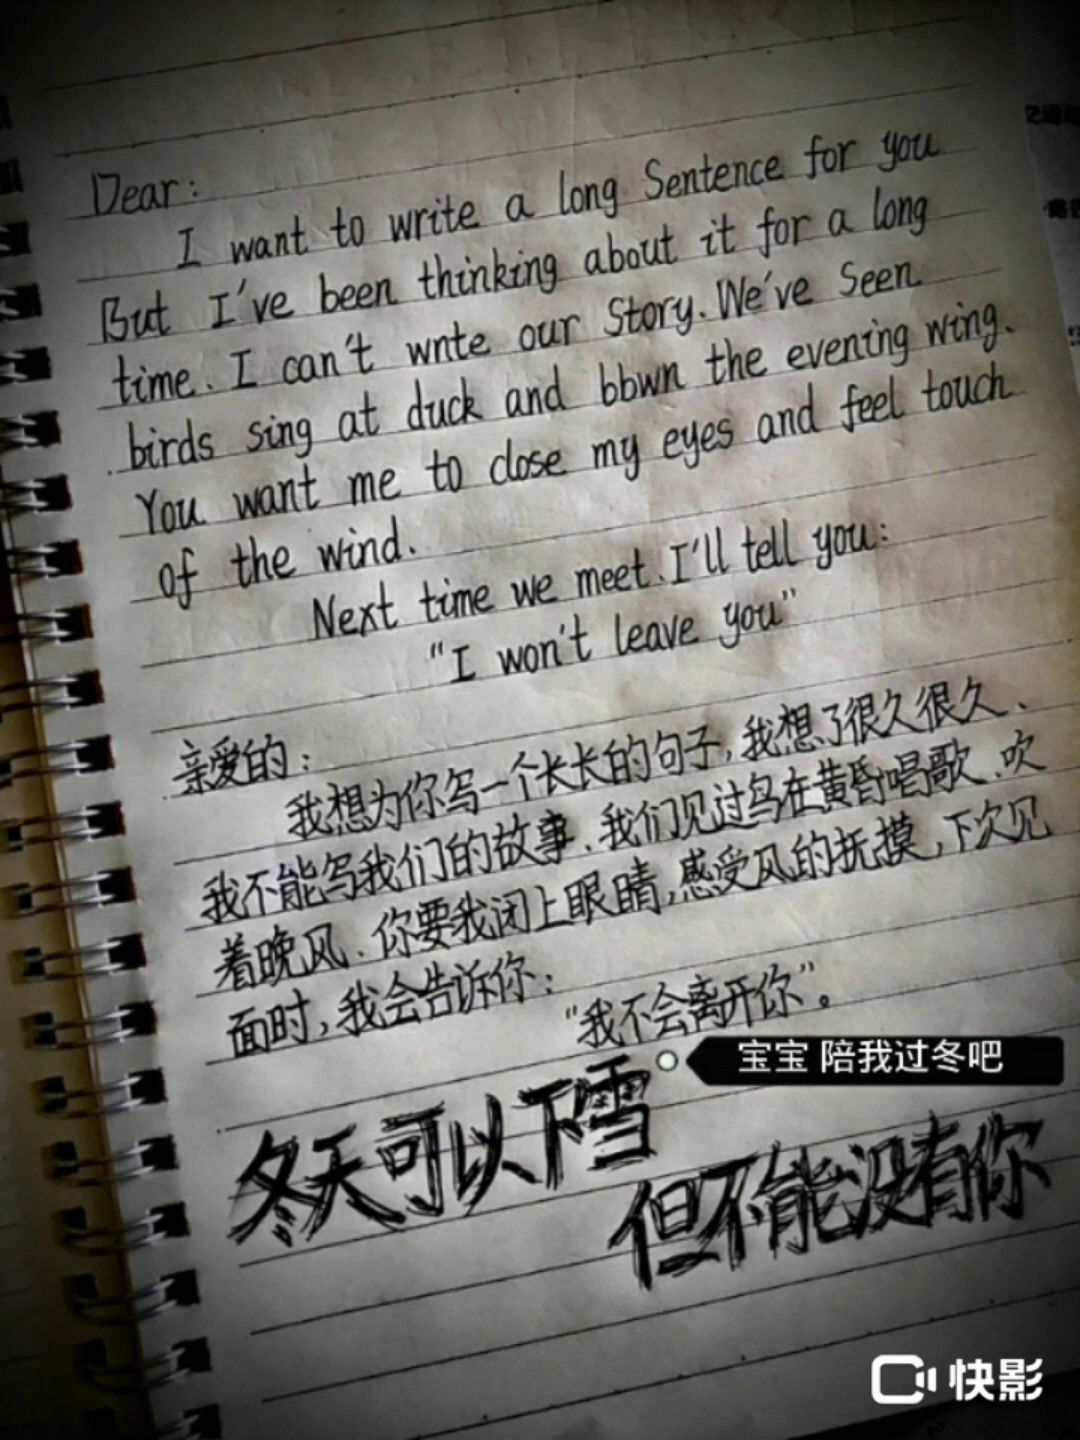 Dear:
I want to write a long Sentence for you
But I've been thinking about it for a long
time. I can't wnte our Story. We've Seen
birds sing at duck and bbwn the evening wing.
You want me to close my eyes and feel touch
of the wind.
Next time we meet. I'll tell you:
"I won't leave you"
亲爱的:
我想为你写一个长长的句子,我想了很久很久、
我不能写我们的故事、我们见过鸟在黄昏唱歌、吹
着晚风、你要我闭上眼睛,感受风的抚摸,下次见
面时,我会告诉你:
"我不会离开你"。
宝宝 陪我过冬吧
冬天可以下雪
但不能没有你
快影